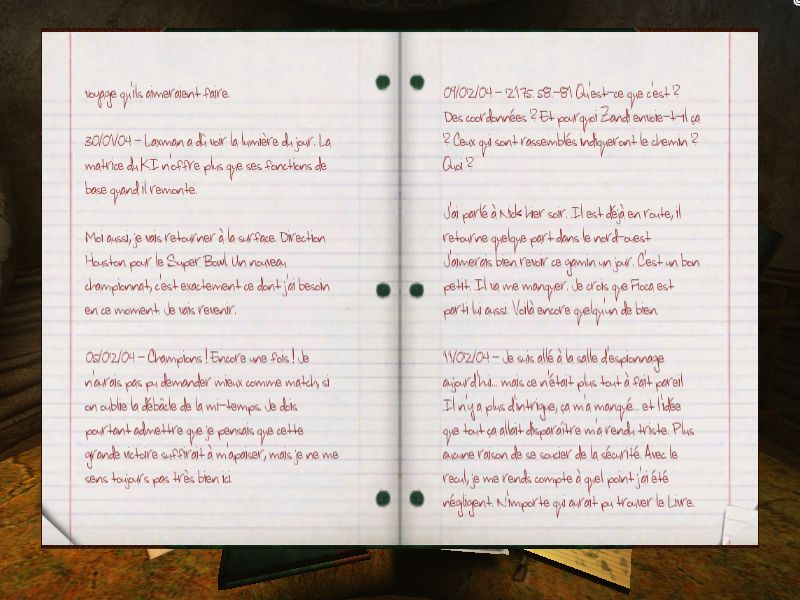 voyage qu'ils aimeraient faire.
30/01/04 – Laxman a dû voir la lumière du jour. La
matrice du KI n'offre plus que ses fonctions de
base quand il remonte.
Moi aussi, je vais retourner à la surface. Direction
Houston pour le Super Bowl. Un nouveau
championnat, c'est exactement ce dont j'ai besoin
en ce moment. Je vais revenir.
05/02/04 – Champions ! Encore une fois ! Je
n'aurais pas pu demander mieux comme match, si
on oublie la débâcle de la mi-temps. Je dois
pourtant admettre que je pensais que cette
grande victoire suffirait à m'apaiser, mais je ne me
sens toujours pas très bien ici.
09/02/04 – 2175.58.-81 Qu'est-ce que c'est ?
Des coordonnées ? Et pourquoi Zandi envoie-t-il ça
? Ceux qui sont rassemblés indiqueront le chemin ?
Quoi ?
J'ai parlé à Nick hier soir. Il est déjà en route, il
retourne quelque part dans le nord-ouest
J'aimerais bien revoir ce gamin un jour. C'est un bon
petit. Il va me manquer. Je crois que Floca est
parti lui aussi. Voilà encore quelqu'un de bien.
11/02/04 – Je suis allé à la salle d'espionnage
aujourd'hui... mais ce n'était plus tout à fait pareil
Il n'y a plus d'intrigue, ça m'a manqué... et l'idée
que tout ça allait disparaître m'a rendu triste. Plus
aucune raison de se soucier de la sécurité. Avec le
recul, je me rends compte à quel point j'ai été
négligent. N'importe qui aurait pu trouver le Livre.